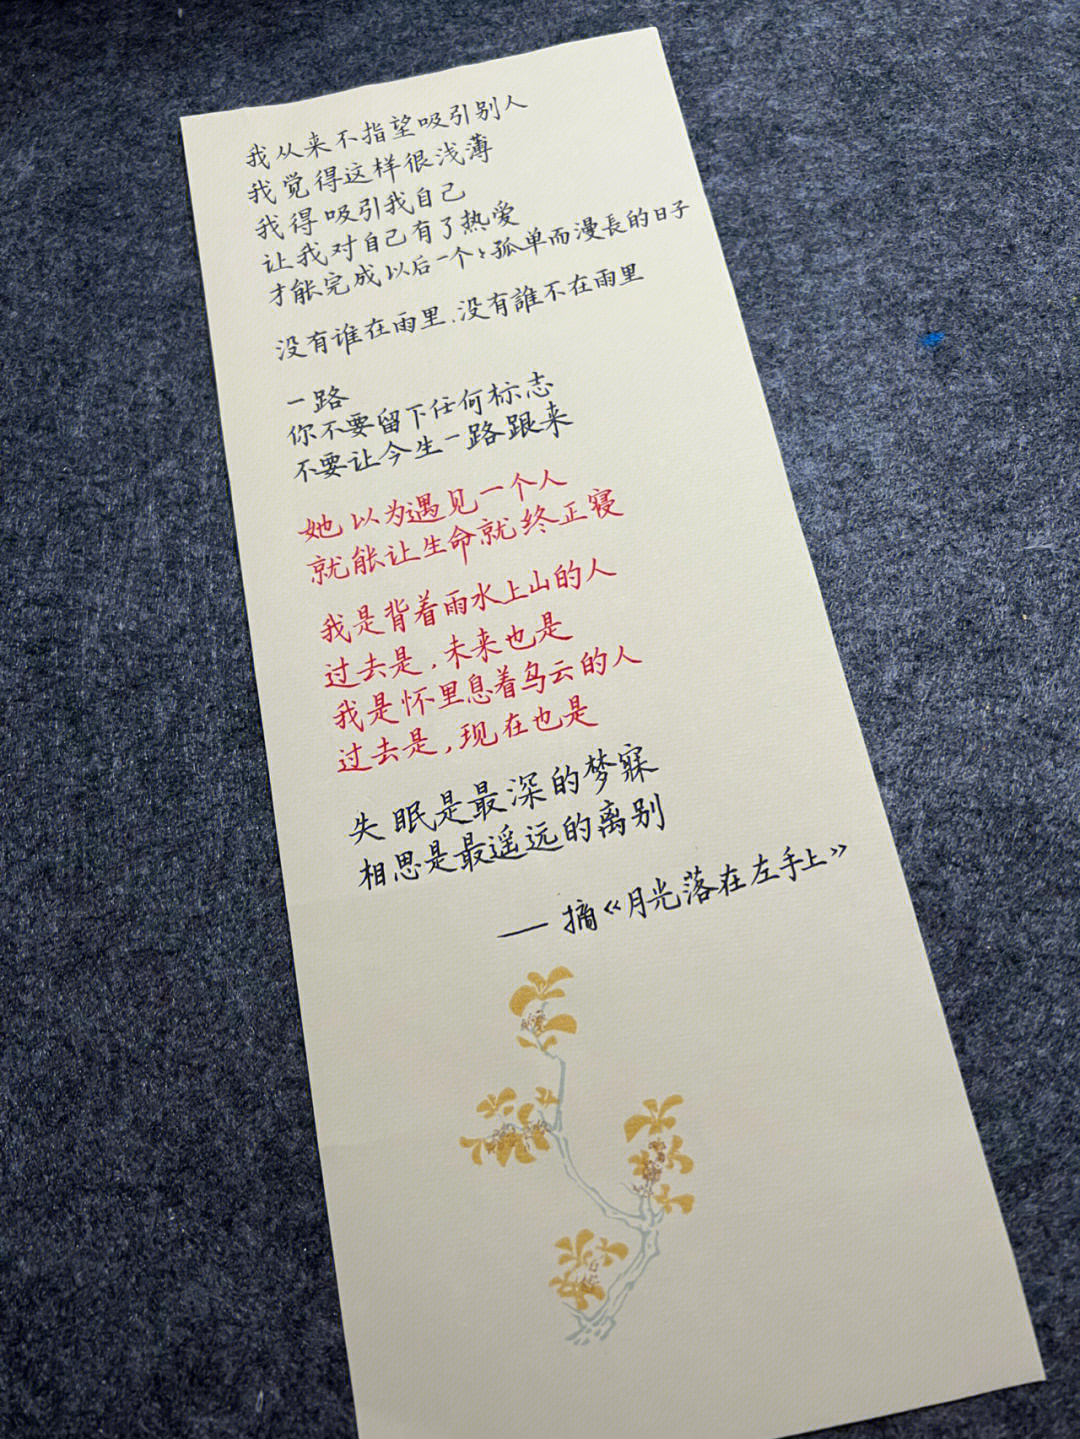 我从来不指望吸引别人
我觉得这样很浅薄
我得吸引我自己
让我对自己有了热爱
才能完成以后一个々孤单而漫長的日子
没有谁在雨里.没有誰不在雨里
一路
你不要留下任何标志
不要让今生一路跟来
她以为遇见一个人
就能让生命就终正寝
我是背着雨水上山的人
过去是,未来也是
我是怀里息着乌云的人
过去是,现在也是
失眠是最深的梦寐
相思是最遥远的离别
——摘《月光落在左手上》